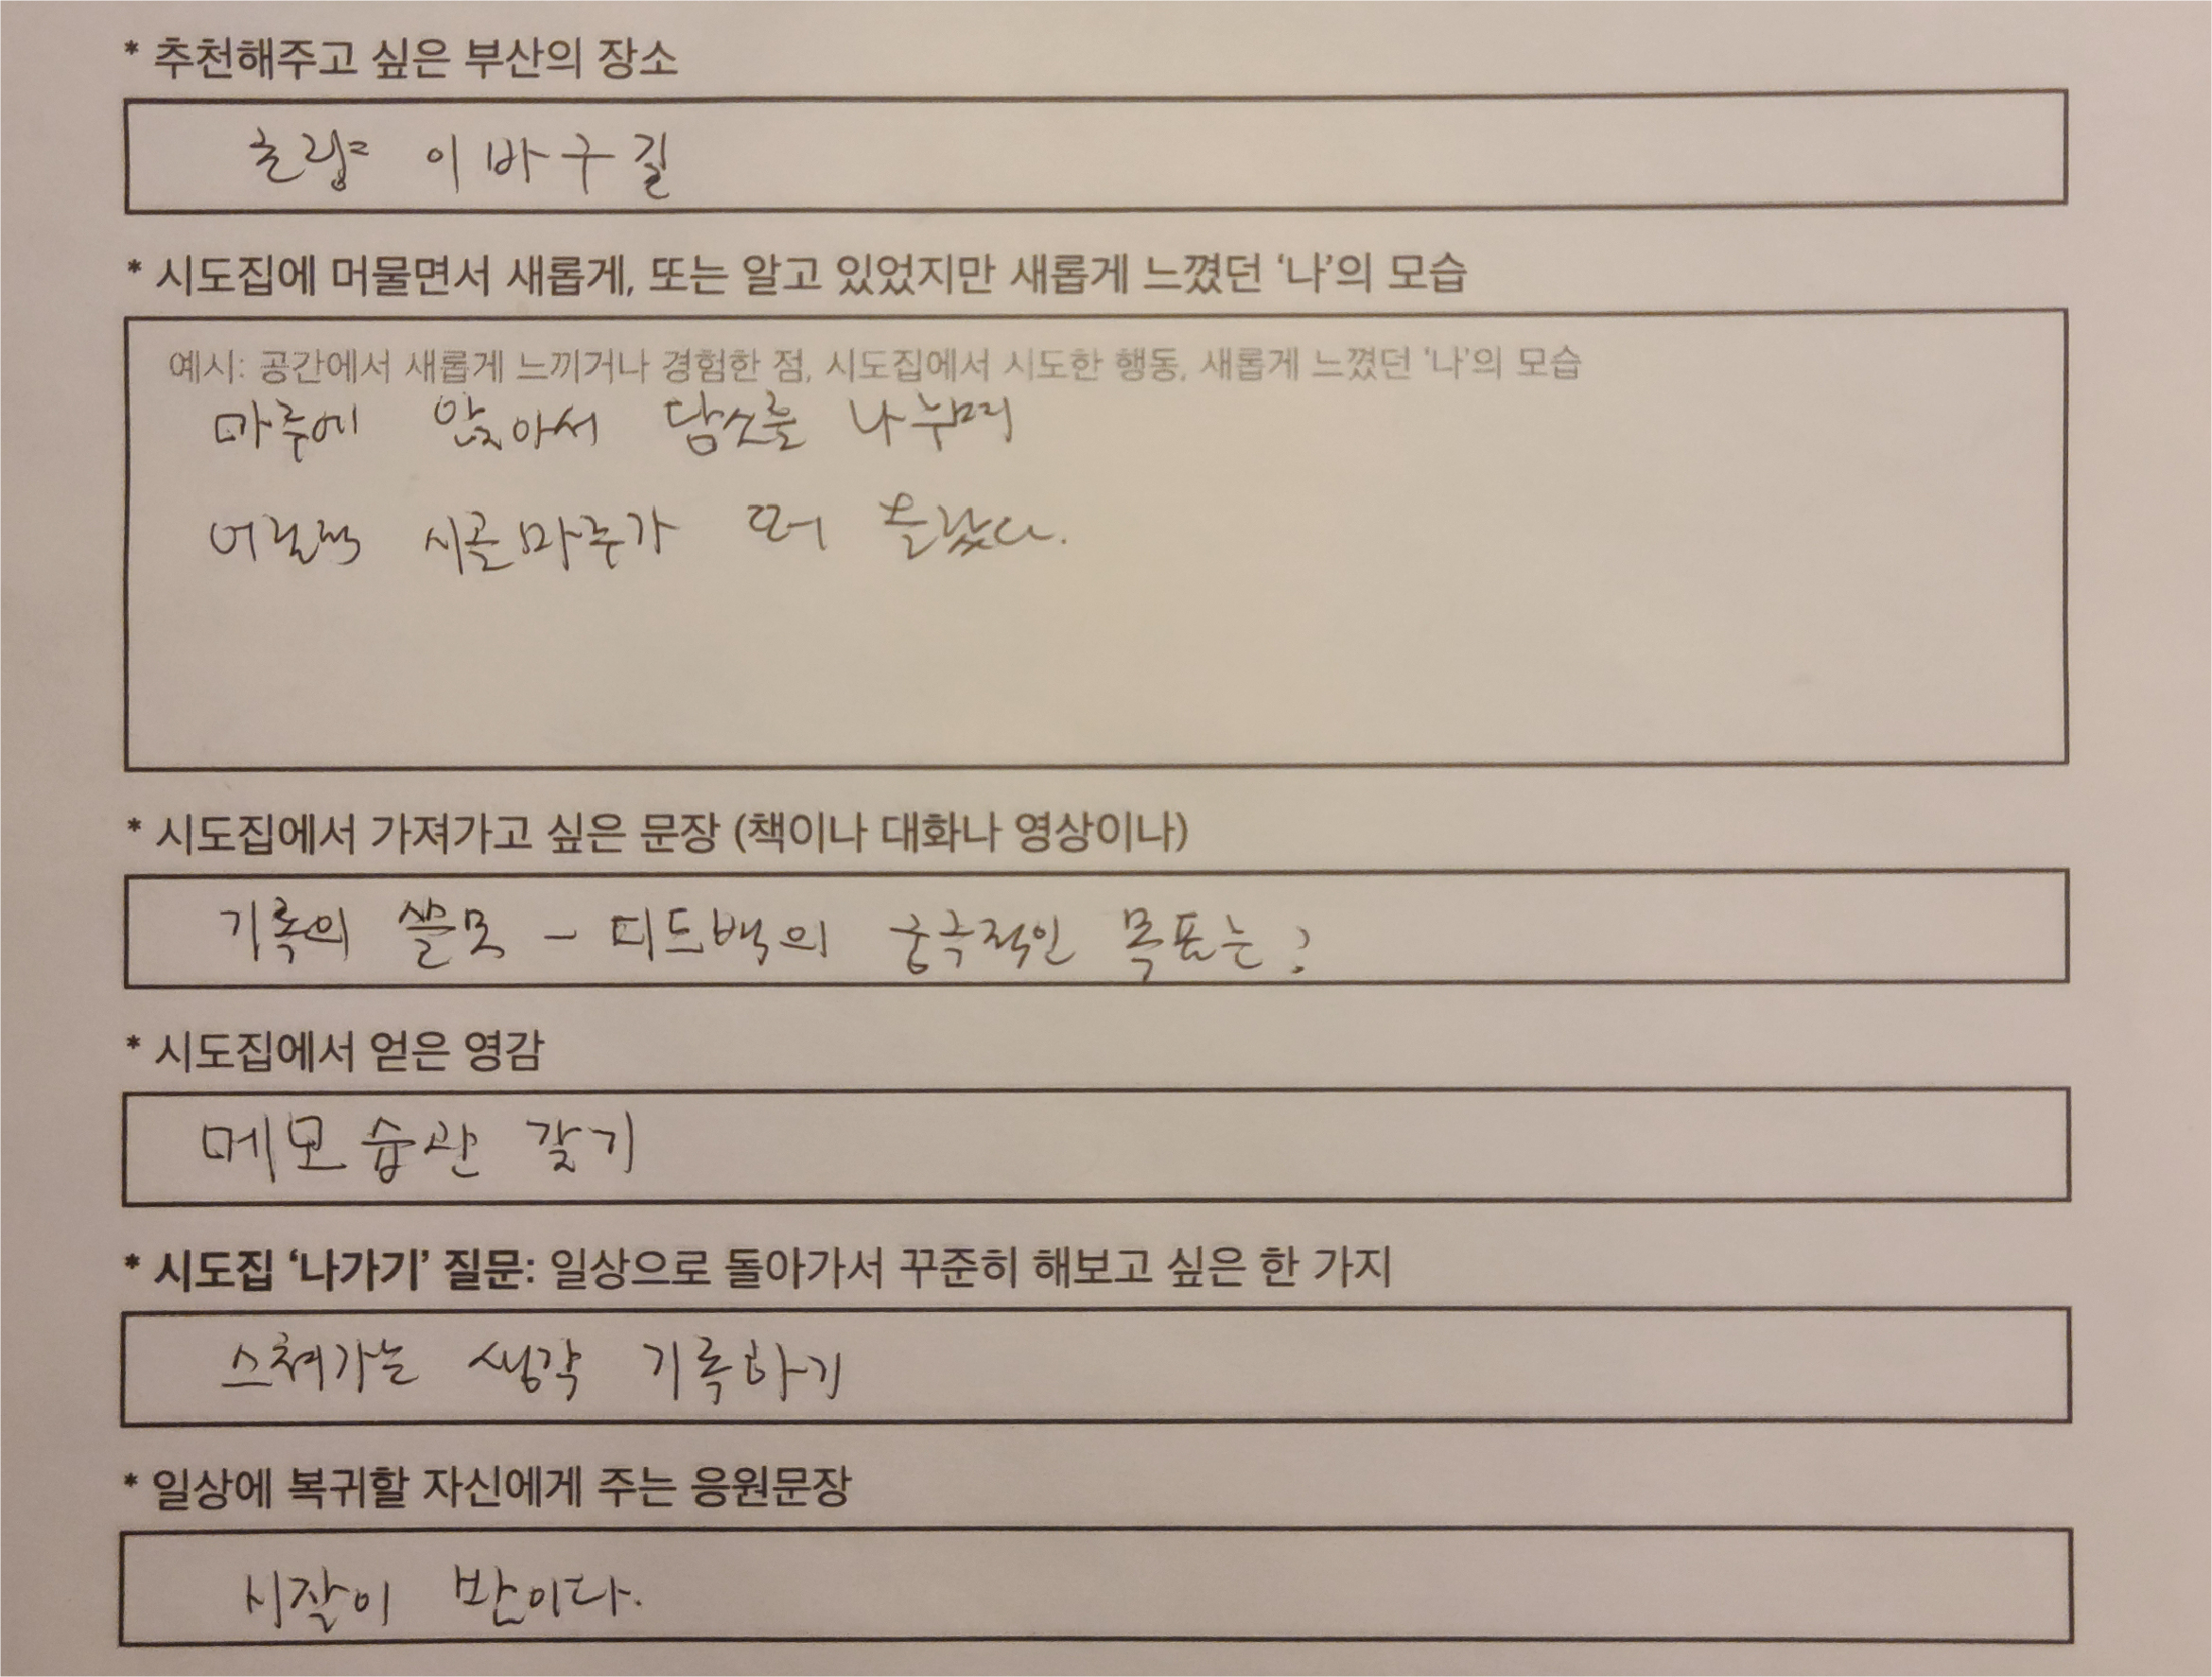 * 추천해주고 싶은 부산의 장소
초량 이바구길
* 시도집에 머물면서 새롭게, 또는 알고 있었지만 새롭게 느꼈던 ‘나’의 모습
예시: 공간에서 새롭게 느끼거나 경험한 점, 시도집에서 시도한 행동, 새롭게 느꼈던 ‘나’의 모습
마루에 앉아서 담소를 나누며
어릴적 시골마루가 떠 올랐다.
* 시도집에서 가져가고 싶은 문장 (책이나 대화나 영상이나)
기록의 쓸모 - 피드백의 궁극적인 목표는?
* 시도집에서 얻은 영감
메모 습관 갖기
* 시도집 ‘나가기’ 질문: 일상으로 돌아가서 꾸준히 해보고 싶은 한 가지
스쳐가는 생각 기록하기
* 일상에 복귀할 자신에게 주는 응원문장
시작이 반이다.